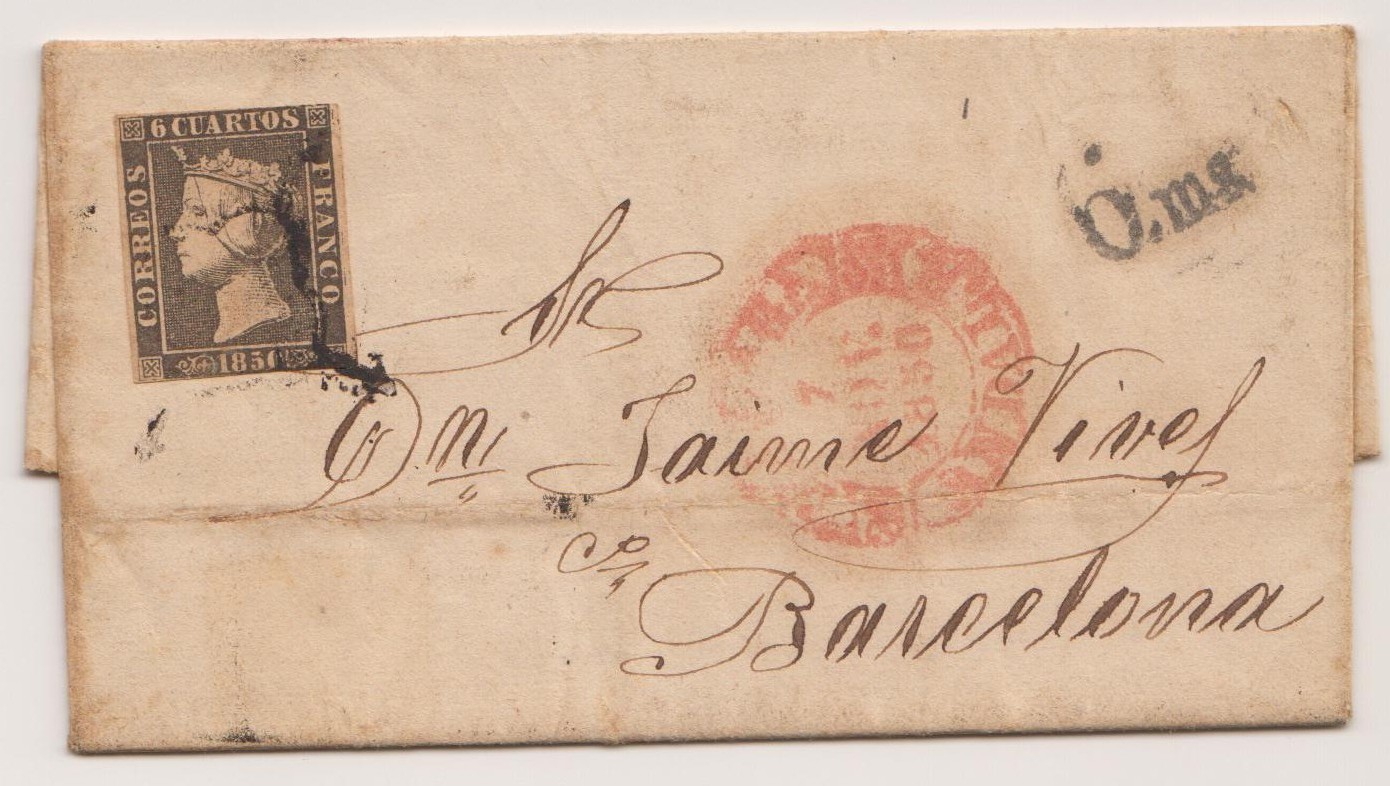 6 CUARTOS
CORREOS
FRANCO
1850
O.ms
Sr
Dn. Jaime Vives
en
Barcelona
7
1850